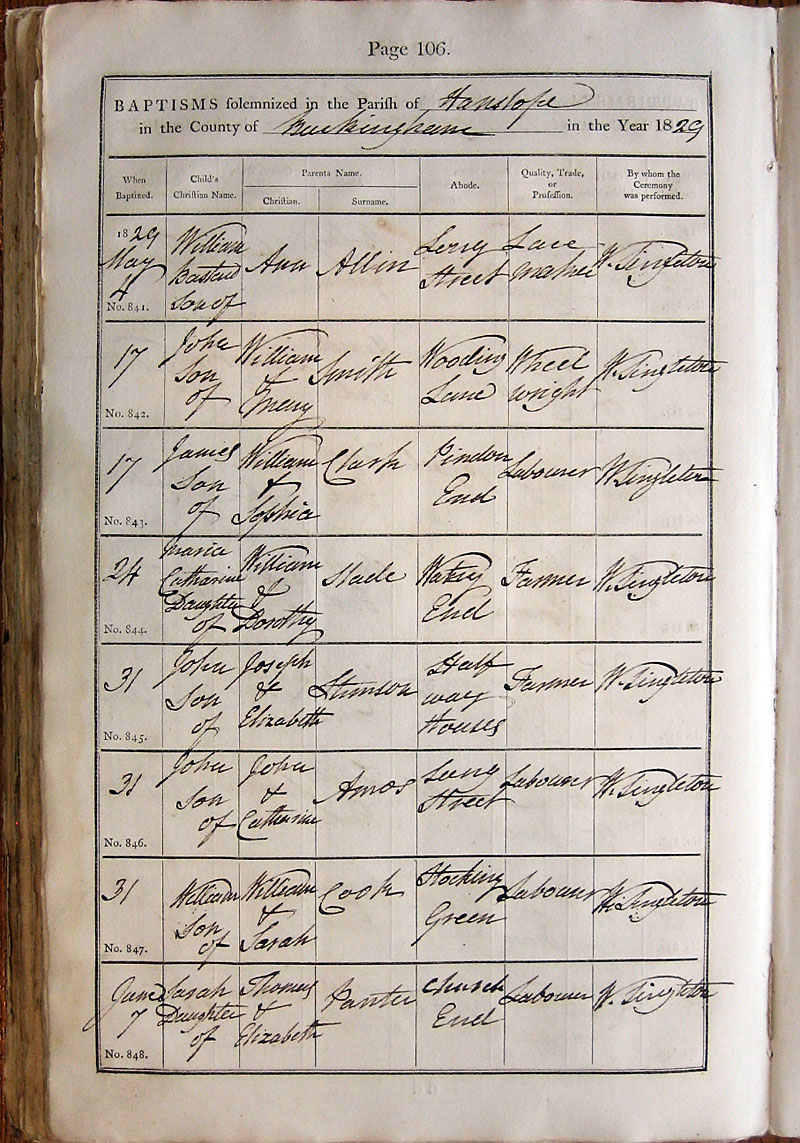 Page 106.
BAPTISMS solemnized in the Parish of Hanslope
in the County of Buckingham in the Year 1829
When Baptized.
Child's Christian Name.
Parents Name.
Christian.
Surname.
Abode.
Quality, Trade, or Profession.
By whom the Ceremony was performed.
1829
May
4
No. 841.
William
Bastard
Son of
Ann
Allin
Long
Street
Lace
maker
W. Singleton
17
No. 842.
John
Son
of
William
&
Mary
Smith
Wooding
Lane
Wheel
wright
W. Singleton
17
No. 843.
James
Son
of
William
&
Sophia
Clark
Pindon
End
Labourer
W. Singleton
24
No. 844.
Maria
Catharine
Daughter
of
William
&
Dorothy
Slade
Watery
End
Farmer
W. Singleton
31
No. 845.
John
Son
of
Joseph
&
Elizabeth
Stimson
Half
way
Houses
Farmer
W. Singleton
31
No. 846.
John
Son
of
John
&
Catharine
Amos
Long
Street
Labourer
W. Singleton
31
No. 847.
William
Son
of
William
&
Sarah
Cook
Stocking
Green
Labourer
W. Singleton
June
7
No. 848.
Sarah
Daughter
of
Thomas
&
Elizabeth
Panter
Church
End
Labourer
W. Singleton